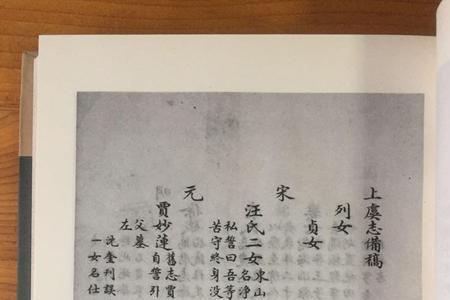 上虞志備稿
列女
貞女
宋
汪氏二女
東山
名淨
私誓曰吾等
苦守終身没
元
賈妙蓮
舊志賈
自誓引
父墓
左
沈奎利誤
一女名仕